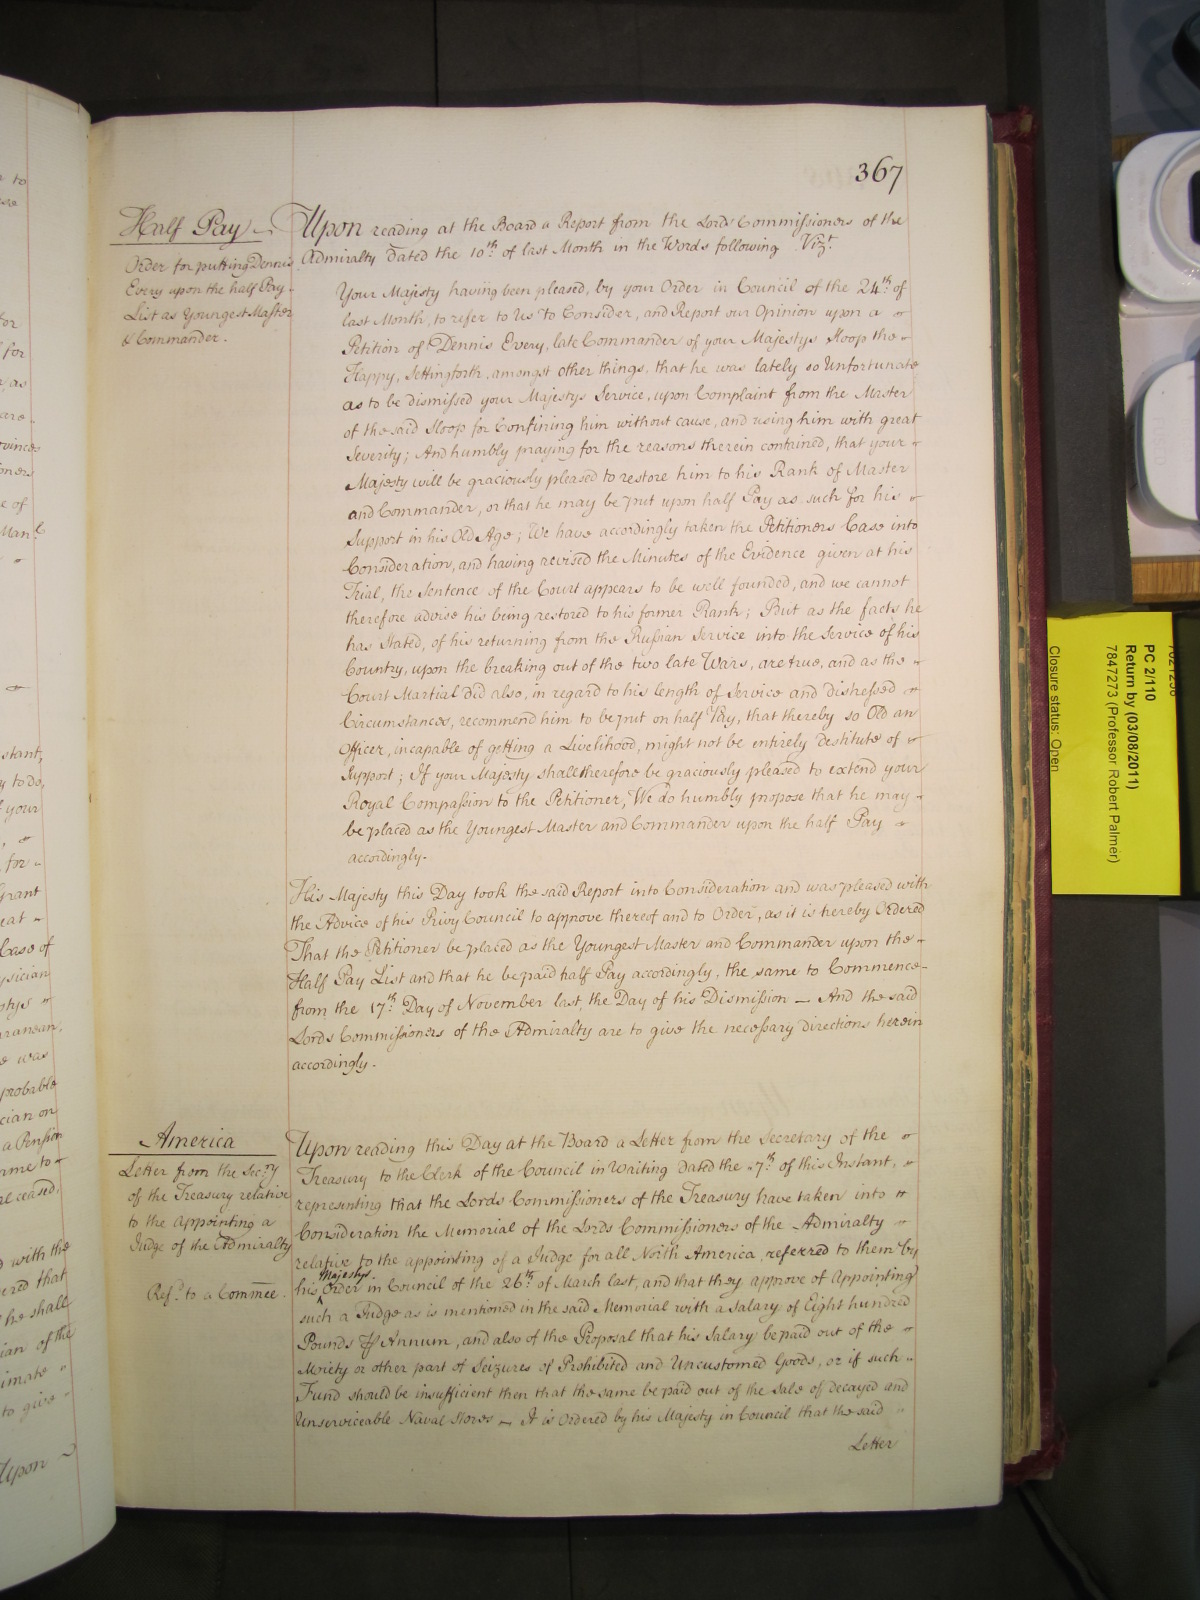 367
Half Pay
Order for putting Dennis
Every upon the half Pay
List as Youngest Master
& Commander.
Upon reading at the Board a Report from the Lords Commissioners of the
Admiralty dated the 10th of last Month in the Words following Vizt
Your Majesty having been pleased, by your Order in Council of the 24th of
last Month, to refer to Us to Consider, and Report our Opinion upon a
Petition of Dennis Every, late Commander of your Majestys Sloop the
Happy, Settingforth, amongst other things, that he was lately so Unfortunate
as to be dismissed your Majestys Service, upon Complaint from the Master
of the said Sloop for Confining him without cause, and using him with great
Severity; And humbly praying for the reasons therein contained, that your
Majesty will be graciously pleased to restore him to his Rank of Master
and Commander, or that he may be put upon half Pay as such for his
Support in his Old Age; We have accordingly taken the Petitioners Case into
Consideration, and having revised the Minutes of the Evidence given at his
Trial, the Sentence of the Court appears to be well founded, and we cannot
therefore advise his being restored to his former Rank; But as the facts he
has Stated, of his returning from the Russian Service into the Service of his
Country, upon the breaking out of the two late Wars, are true, and as the
Court Martial did also, in regard to his length of Service and distressed
Circumstances, recommend him to be put on half Pay, that thereby so Old an
Officer, incapable of getting a Livelihood, might not be entirely destitute of
Support; If your Majesty shall therefore be graciously pleased to extend your
Royal Compassion to the Petitioner, We do humbly propose that he may
be placed as the Youngest Master and Commander upon the half Pay
accordingly.
His Majesty this Day took the said Report into Consideration and was pleased with
the Advice of his Privy Council to approve thereof and to Order, as it is hereby Ordered
That the Petitioner be placed as the Youngest Master and Commander upon the
Half Pay List and that he be paid half Pay accordingly, the same to Commence
from the 17th Day of November last, the Day of his Dismission — And the said
Lords Commissioners of the Admiralty are to give the necessary directions herein
accordingly.
America
Letter from the Secry
of the Treasury relative
to the appointing a
Judge of the Admiralty
Refd. to a Commee.
Upon reading this Day at the Board a Letter from the Secretary of the
Treasury to the Clerk of the Council in Waiting dated the 7th of this Instant,
representing that the Lords Commissioners of the Treasury have taken into
Consideration the Memorial of the Lords Commissioners of the Admiralty
relative to the appointing of a Judge for all North America, referred to them by
his Majestys Order in Council of the 26th of March last, and that they approve of Appointing
such a Judge as is mentioned in the said Memorial with a Salary of Eight hundred
Pounds ⅌ Annum, and also of the Proposal that his Salary be paid out of the
Moiety or other part of Seizures of Prohibited and Uncustomed Goods, or if such
Fund should be insufficient then that the same be paid out of the Sale of decayed and
Unserviceable Naval Stores — It is Ordered by his Majesty in Council that the said
Letter
PC 2/110
Return by (03/08/2011)
7847273 (Professor Robert Palmer)
Closure status: Open